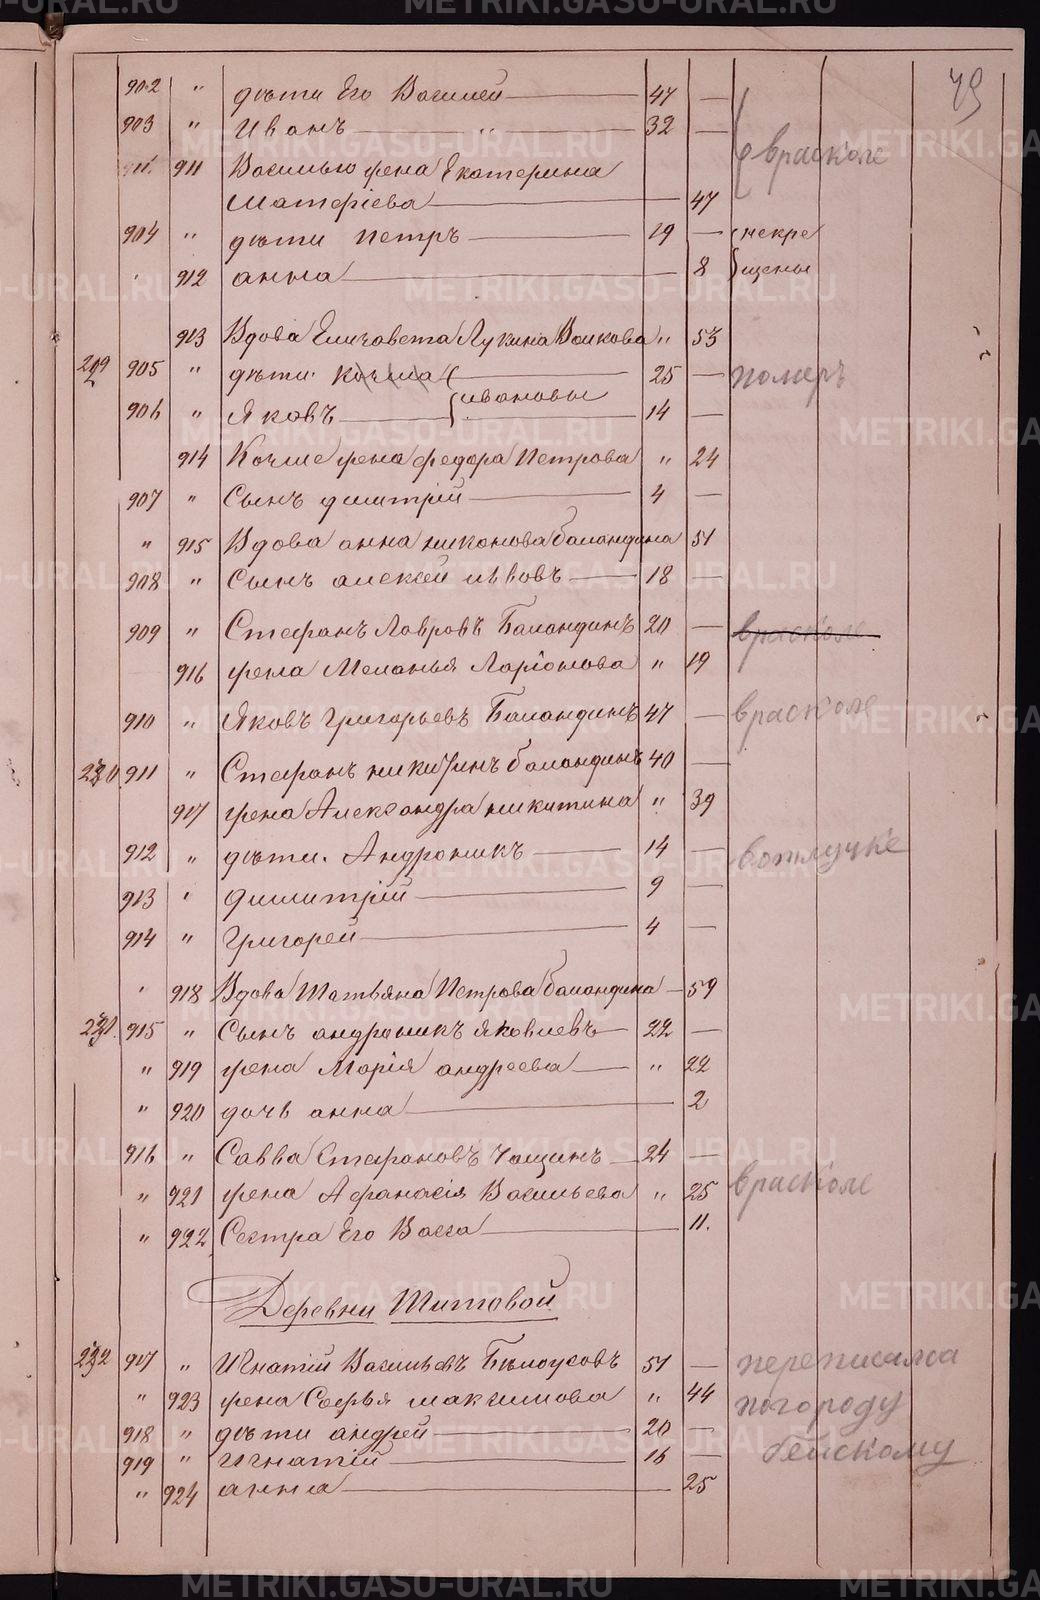 79
902 " дѣти Его Василей 47 —
903 " Иванъ " 32 —
врасколе
911 Василью жена Екатерина
Матфіева 47
904 " дѣти Петръ 19 — некре
912 анна 8 щены
913 Вдова Елизавета Лукина Волкова " 53
229 905 " дѣти Козма 25 — померъ
ивановы
906 " Яковъ 14 —
914 Козме жена федора Петрова " 24
907 " Сынъ димитрій 4 —
" 915 Вдова анна никонова баландина 51
908 " Сынъ алексей львовъ 18 —
909 " Стефанъ Лавровъ Баландинъ 20 — врасколе
916 жена Меланья Ларіонова " 19
910 " Яковъ Григорьевъ Баландинъ 47 — врасколе
230 911 " Стефанъ никитинъ баландинъ 40 —
917 жена Александра никитина " 39
912 " дѣти. Андроникъ 14 — вотлучке
913 " димитрій 9 —
914 " Григорей 4 —
" 918 Вдова Татьяна Петрова баландина — 59
231. 915 " Сынъ андроникъ яковлевъ 22 —
" 919 жена Марія андреева " 22
" 920 дочь анна 2
916 " Савва Стефановъ Чащинъ 24 —
" 921 жена Афанасія Васильева " 25 врасколе
" 922 Сестра Его Васса 11.
Деревни Титовой
232 917 " Игнатій Васильевъ Бѣлоусовъ 51 — переписалса
" 923 жена Софья максимова " 44 погороду
918 " дѣти андрей 20 —
919 " Игнатій 16 — бейскому
" 924 анна 25
METRIKI.GASU-URAL.RU